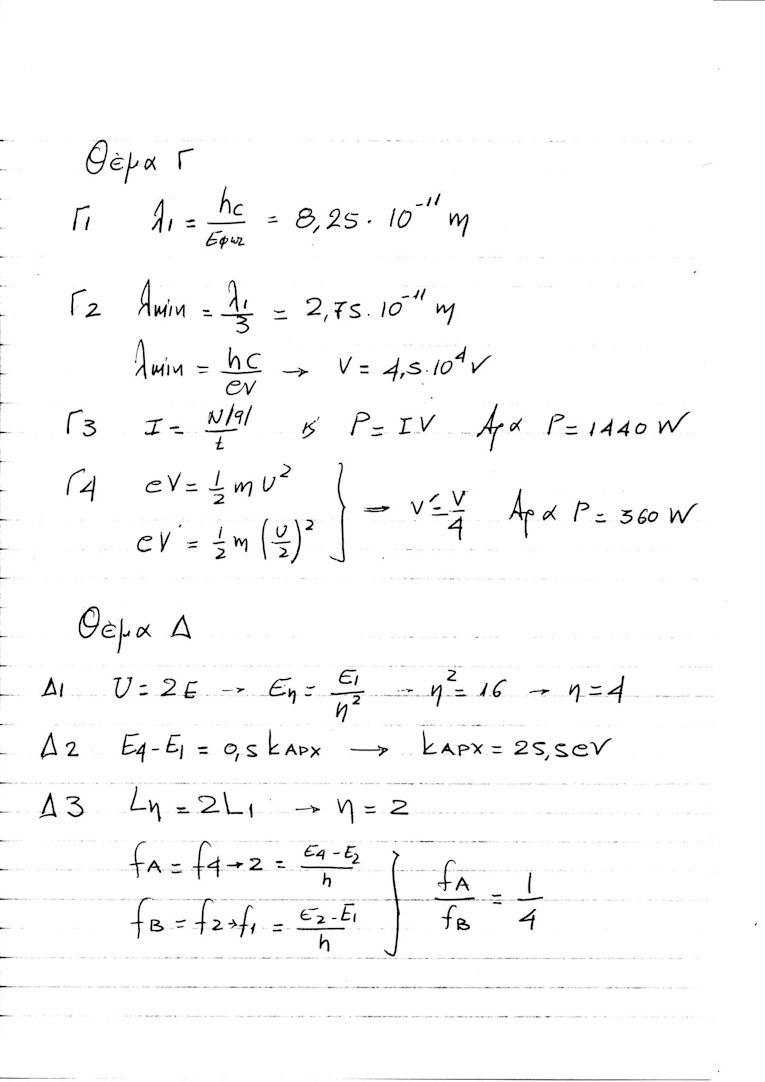 Θέμα Γ
Γ1 λ1 = hc/Εφωτ = 8,25 · 10^-11 m
Γ2 λmin = λ1/3 = 2,75 · 10^-11 m
λmin = hc/eV → V = 4,5 · 10^4 V
Γ3 I = N|q|/t κ P = IV Άρα P = 1440 W
Γ4 eV = 1/2 m υ^2
eV' = 1/2 m (υ/2)^2 } → V' = V/4 Άρα P = 360 W
Θέμα Δ
Δ1 U = 2E → Eη = E1/η^2 → η^2 = 16 → η = 4
Δ2 E4 - E1 = 0,5 ΚΑΡΧ → ΚΑΡΧ = 25,5 eV
Δ3 Lη = 2L1 → η = 2
fA = f4→2 = E4 - E2/h
fB = f2→f1 = E2 - E1/h } fA/fB = 1/4